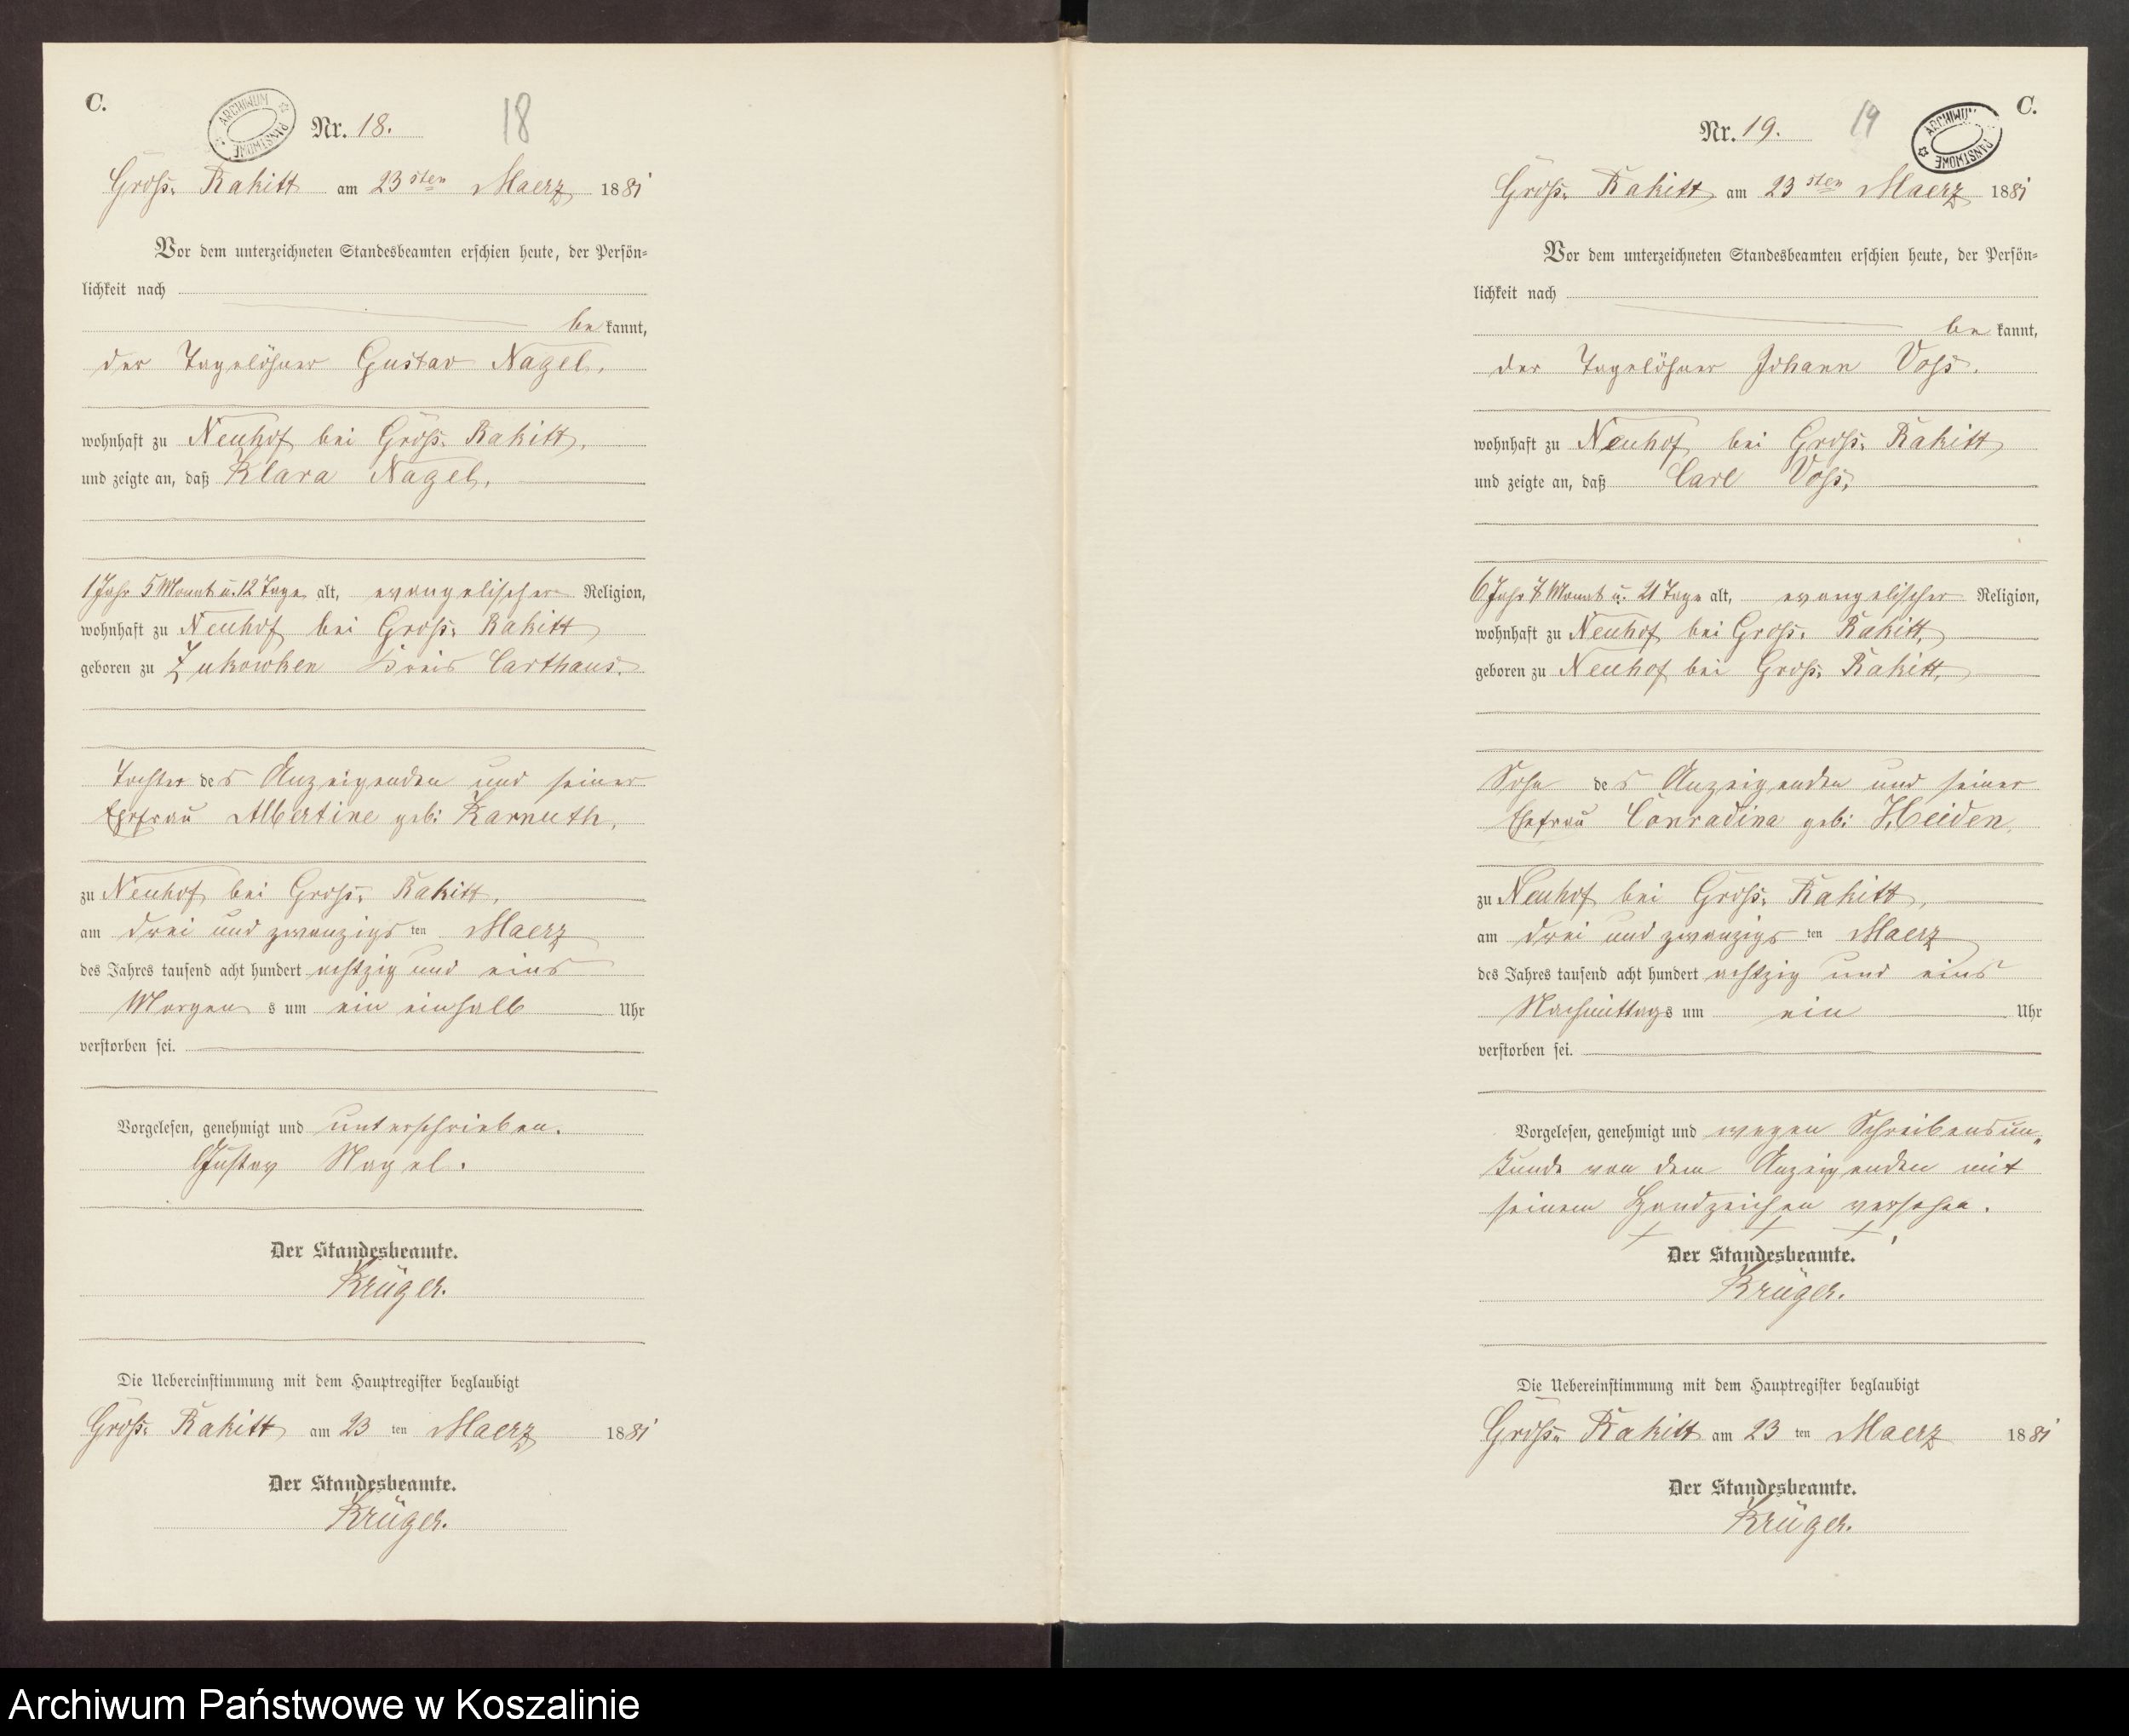 C.
ARCHIWUM PAŃSTWOWE
Nr. 18.
18
Groß-Rakitt am 23sten Maerz 1881
Vor dem unterzeichneten Standesbeamten erschien heute, der Persön-
lichkeit nach
bekannt,
der Tagelöhner Gustav Nagel,
wohnhaft zu Neuhof bei Groß-Rakitt,
und zeigte an, daß Klara Nagel,
1 Jahr 5 Monat u. 12 Tage alt, evangelischer Religion,
wohnhaft zu Neuhof bei Groß-Rakitt
geboren zu Zukowken Kreis Carthaus.
Tochter des Anzeigenden und seiner
Ehefrau Albertine geb: Karnuth,
zu Neuhof bei Groß-Rakitt,
am drei und zwanzigsten Maerz
des Jahres tausend acht hundert achtzig und eins
Morgens um ein einhalb Uhr
verstorben sei.
Vorgelesen, genehmigt und unterschrieben.
Gustav Nagel.
Der Standesbeamte.
Krüger.
Die Uebereinstimmung mit dem Hauptregister beglaubigt
Groß-Rakitt am 23ten Maerz 1881
Der Standesbeamte.
Krüger.
C.
ARCHIWUM PAŃSTWOWE
Nr. 19.
19
Groß-Rakitt am 23sten Maerz 1881
Vor dem unterzeichneten Standesbeamten erschien heute, der Persön-
lichkeit nach
bekannt,
der Tagelöhner Johann Voß.
wohnhaft zu Neuhof bei Groß-Rakitt
und zeigte an, daß Carl Voß,
6 Jahr Monat u. 21 Tage alt, evangelischer Religion,
wohnhaft zu Neuhof bei Groß-Rakitt,
geboren zu Neuhof bei Groß-Rakitt,
Sohn des Anzeigenden und seiner
Ehefrau Conradina geb: Heiden,
zu Neuhof bei Groß-Rakitt,
am drei und zwanzigsten Maerz
des Jahres tausend acht hundert achtzig und eins
Nachmittags um ein Uhr
verstorben sei.
Vorgelesen, genehmigt und wegen Schreibensun-
kunde von dem Anzeigenden mit
seinem Handzeichen versehen.
+ + +
Der Standesbeamte.
Krüger.
Die Uebereinstimmung mit dem Hauptregister beglaubigt
Groß-Rakitt am 23ten Maerz 1881
Der Standesbeamte.
Krüger.
Archiwum Państwowe w Koszalinie